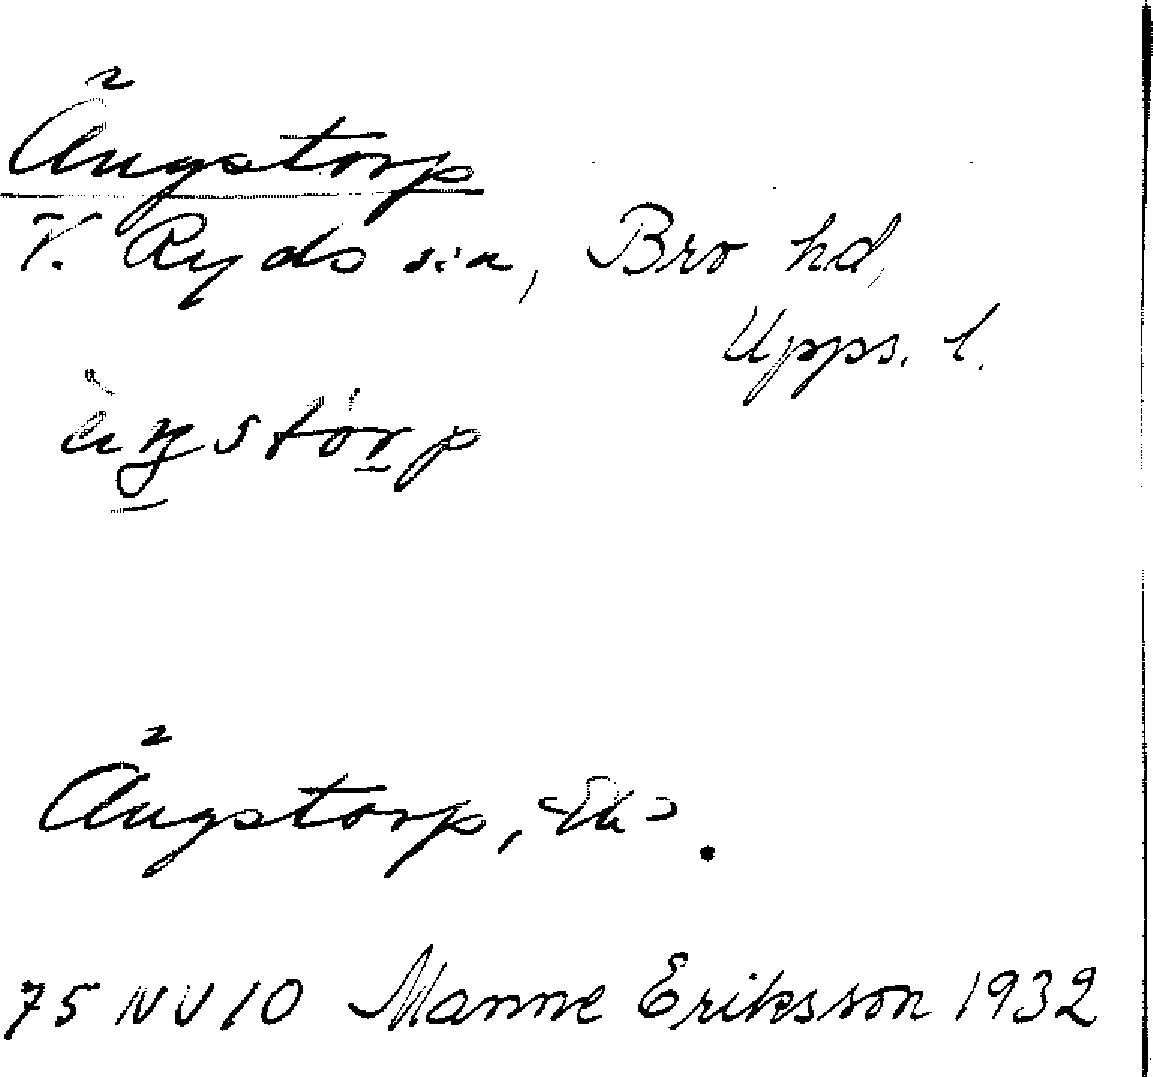 Ängstorp
V. Ryds sn, Bro hd,
Upps. l.
Ängstorp, Ek
75 NV 10 Manne Eriksson 1932